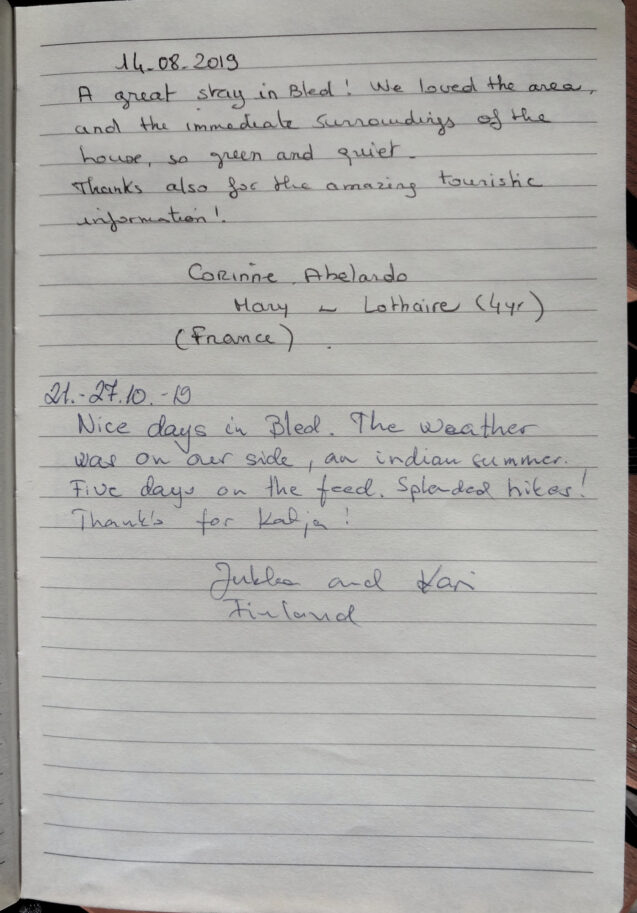 14-08-2019
A great stay in Bled! We loved the area,
and the immediate surroundings of the
house, so green and quiet.
Thanks also for the amazing touristic
information!
Corinne. Abelardo
Mary - Lothaire (4yr)
(France).
21.-27.10.-19
Nice days in Bled. The weather
was on our side, an indian summer.
Five days on the feed. Splended hikes!
Thank's for Katja!
Jukka and Kari
Finland